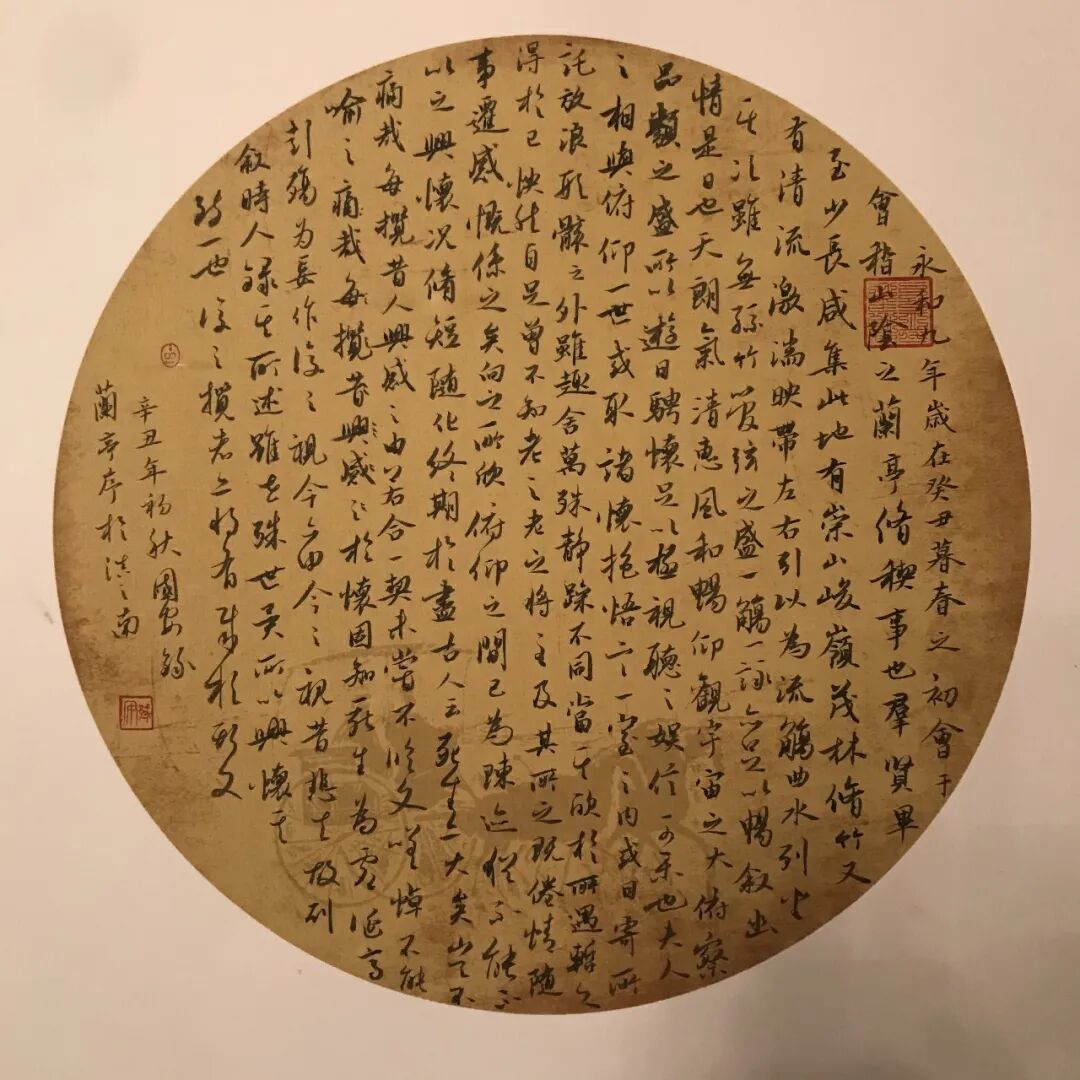 永和九年歲在癸丑暮春之初會于
會稽山陰之蘭亭脩稧事也羣賢畢
至少長咸集此地有崇山峻嶺茂林脩竹又
有清流激湍映帶左右引以為流觴曲水列坐
其次雖無絲竹管弦之盛一觴一詠亦足以暢敘幽
情是日也天朗氣清惠風和暢仰觀宇宙之大俯察
品類之盛所以遊目騁懷足以極視聽之娛信可樂也夫人
之相與俯仰一世或取諸懷抱悟言一室之內或因寄所
託放浪形骸之外雖趣舍萬殊靜躁不同當其欣於所遇暫
得於己快然自足曾不知老之老之將至及其所之既倦情隨
事遷感慨係之矣向之所欣俯仰之間已為陳迹猶不能不
以之興懷況脩短隨化終期於盡古人云死生亦大矣豈不
痛哉每攬昔人興感之由若合一契未嘗不臨文嗟悼不能
喻之痛哉每攬昔興感之於懷固知死生為虛誕齊
彭殤為妄作後之視今亦由今之視昔悲夫故列
敘時人錄其所述雖世殊世異所以興懷其
致一也後之攬者亦將有感於斯文
辛丑年初秋國安錄
蘭亭序於